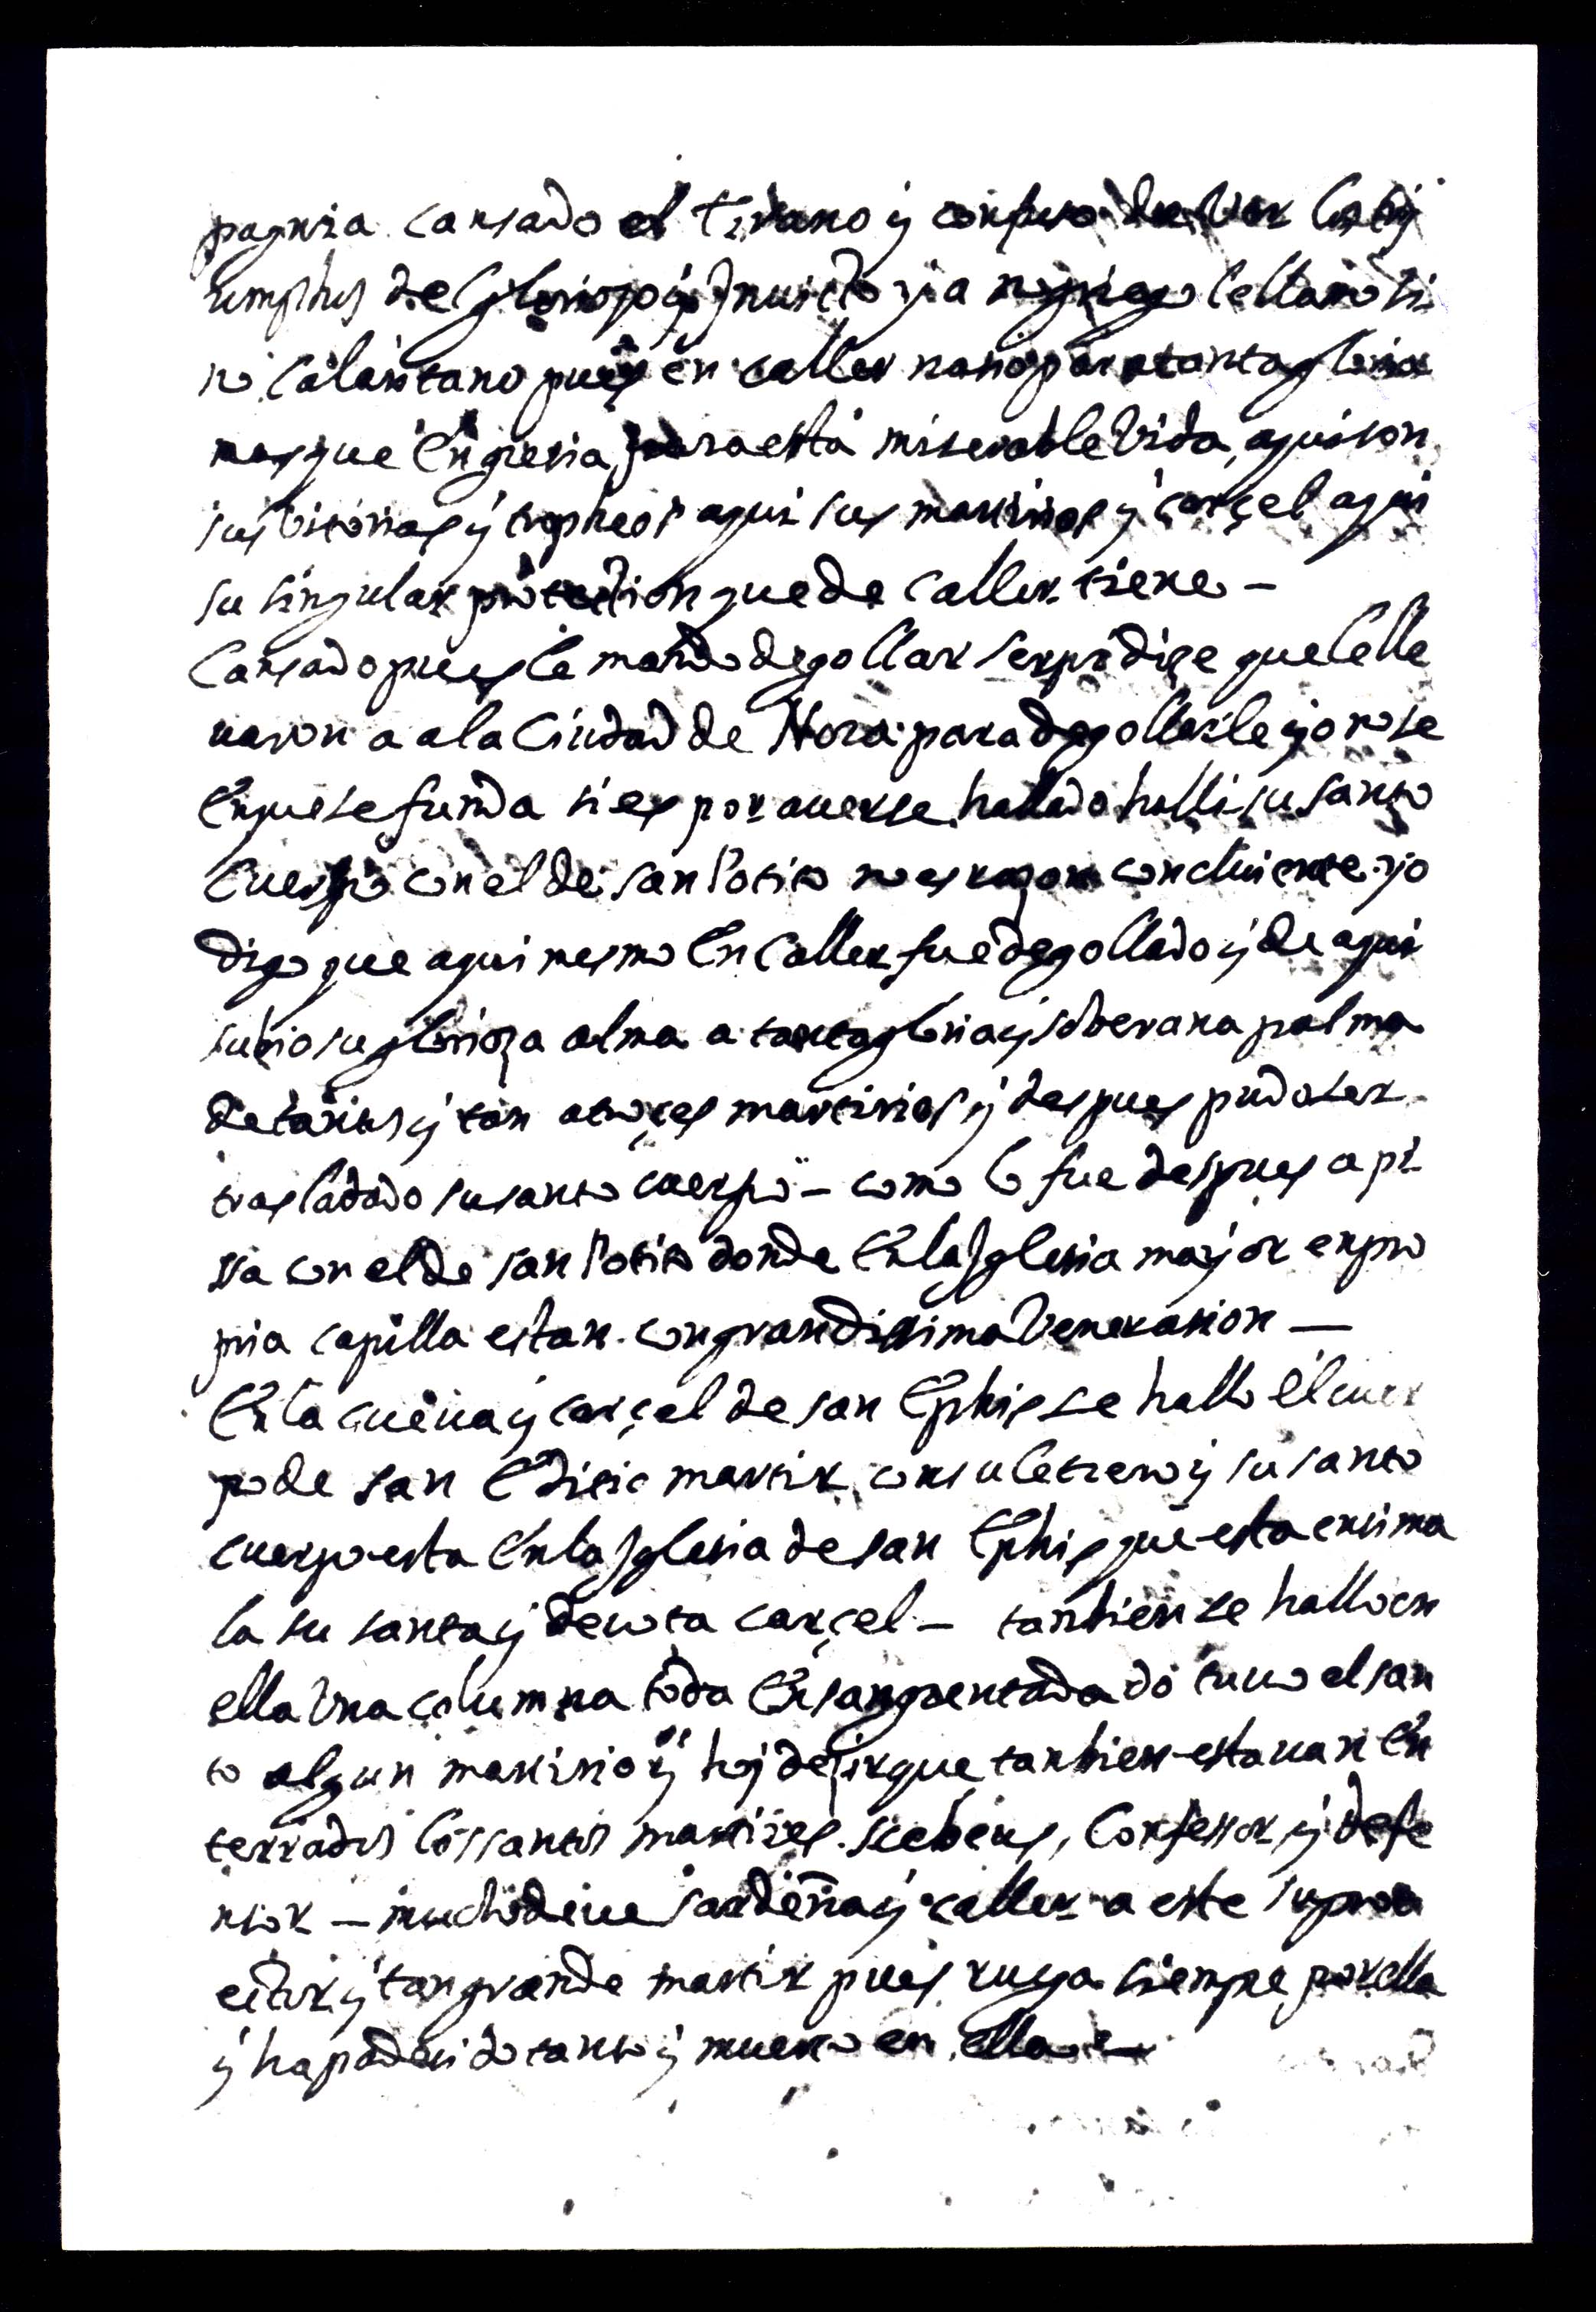 pagnia cansado el tirano y confuso de ver los tri
umphos del glorioso y Inuicto ya no griego le llamo si
no Calaritano pues en caller nasio para tanta gloria
mas que En gresia para esta miserable Vida, aqui son
sus Vitorias y tropheos aqui sus martirios y carçel aqui
su singular protection que de caller tiene –
Cansado pues le mando degollar sexpr dize que le lle
uaron a a la Ciudad de Nora para degollarle yo no se
En que se funda si es por auerse hallado halli su santo
Cuerpo con el de san Potito no es razon concluiente yo
digo que aqui mesmo En Caller fue degollado y de aqui
subio su glorioza alma a tanta gloria y soberana palma
de tantos y tan atroçes martirios y despues pudo ser
trasladado su santo cuerpo – como lo fue despues a pi
sa con el de san Potito donde En la Iglesia mayor en pro
pria capilla estan con grandissima Veneration —
En la cueua y carçel de san Ephis se hallo el cuer
po de san Edisio martir con su letrero y su santo
cuerpo esta En la Iglesia de san Ephis que esta ensima
la su santa y deuota carçel – tanbien se hallo en
ella Vna columna toda Ensangrentada do tuuo el san
to algun martirio y hoy dezir que tanbien estauan En
terrados los santos martires. Confessor y defe
nsor – mucho deue sardeña y caller a este su prot
ector y tan grande martir pues ruega siempre por ella
y ha padesido tanto y muerto en ella —